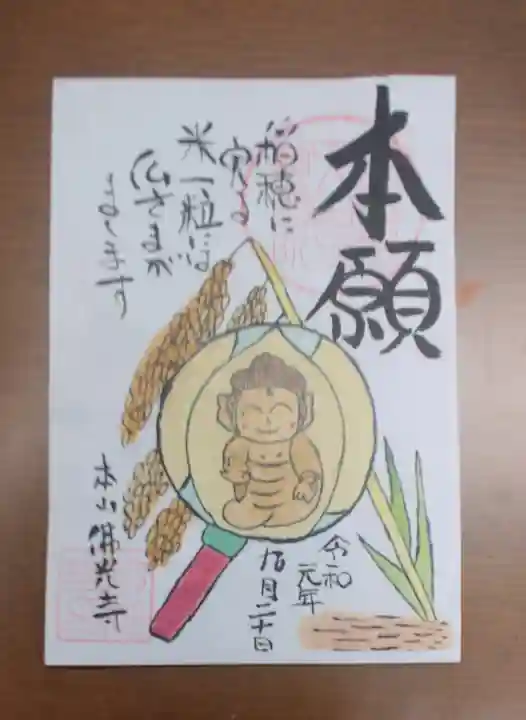 本願
稲穂に
実る
米一粒には
仏さまが
令和
元年
九月二十日
本山佛光寺